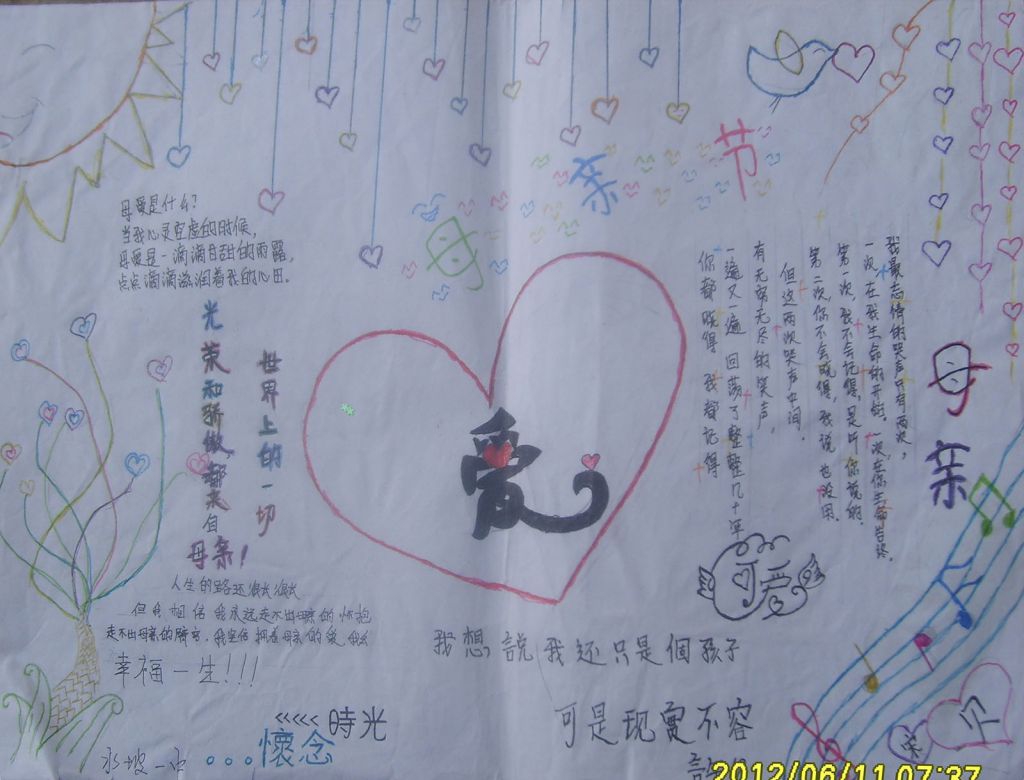 母亲节
母爱是什么?
当我心灵空虚的时候,
母爱是一滴滴甘甜的雨露,
点点滴滴滋润着我的心田。
世界上的一切
光荣和骄傲都来自
母亲!
人生的路还很长很长
但我相信我永远走不出母亲的怀抱
幸福一生!!!
愛
母亲
我最忘情的哭声只有两次,
一次,在我生命的开始,一次,在你生命告终
第一次,我不会记得,是听你说的,
第二次,你不会晓得,我说也没用。
但这两次哭声中间,
有无穷无尽的笑声,
一遍又一遍 回荡了整整几十年
你都晓得 我都记得
可爱
我想說我还只是個孩子
可是现實不容
<<<<<時光
...懷念
2012/06/11 07:37